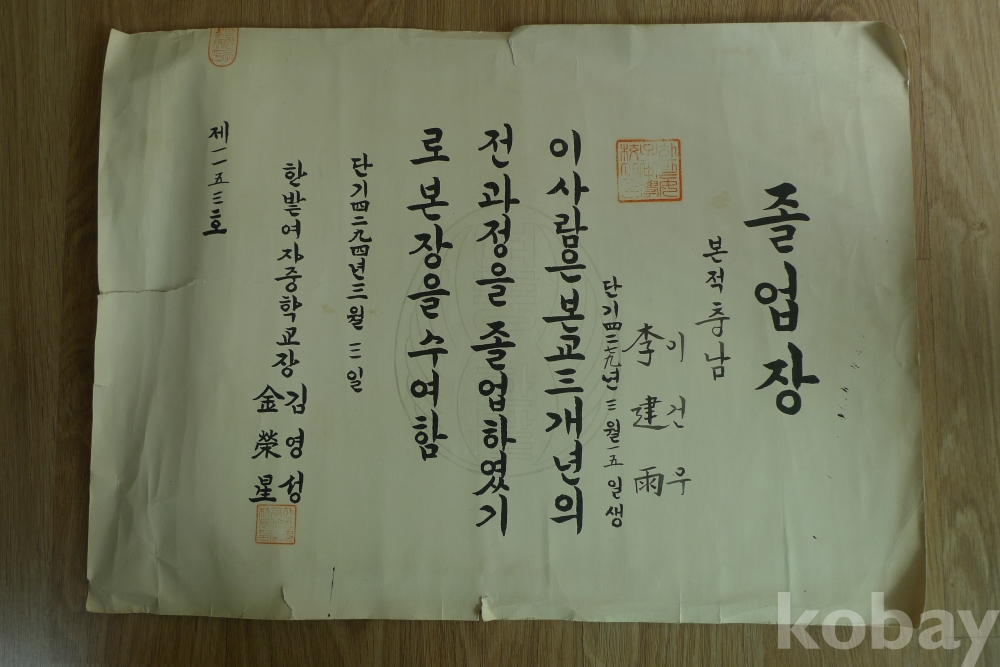 졸업장
본적 충남
이건우
李建雨
단기四二七九年三월一五일생
이 사람은 본교 三개년의
전 과정을 졸업하였기
로 본장을 수여함
단기四二九四년 三월 三일
한밭여자중학교장 김영성
金榮星
제一一五三호
kobay